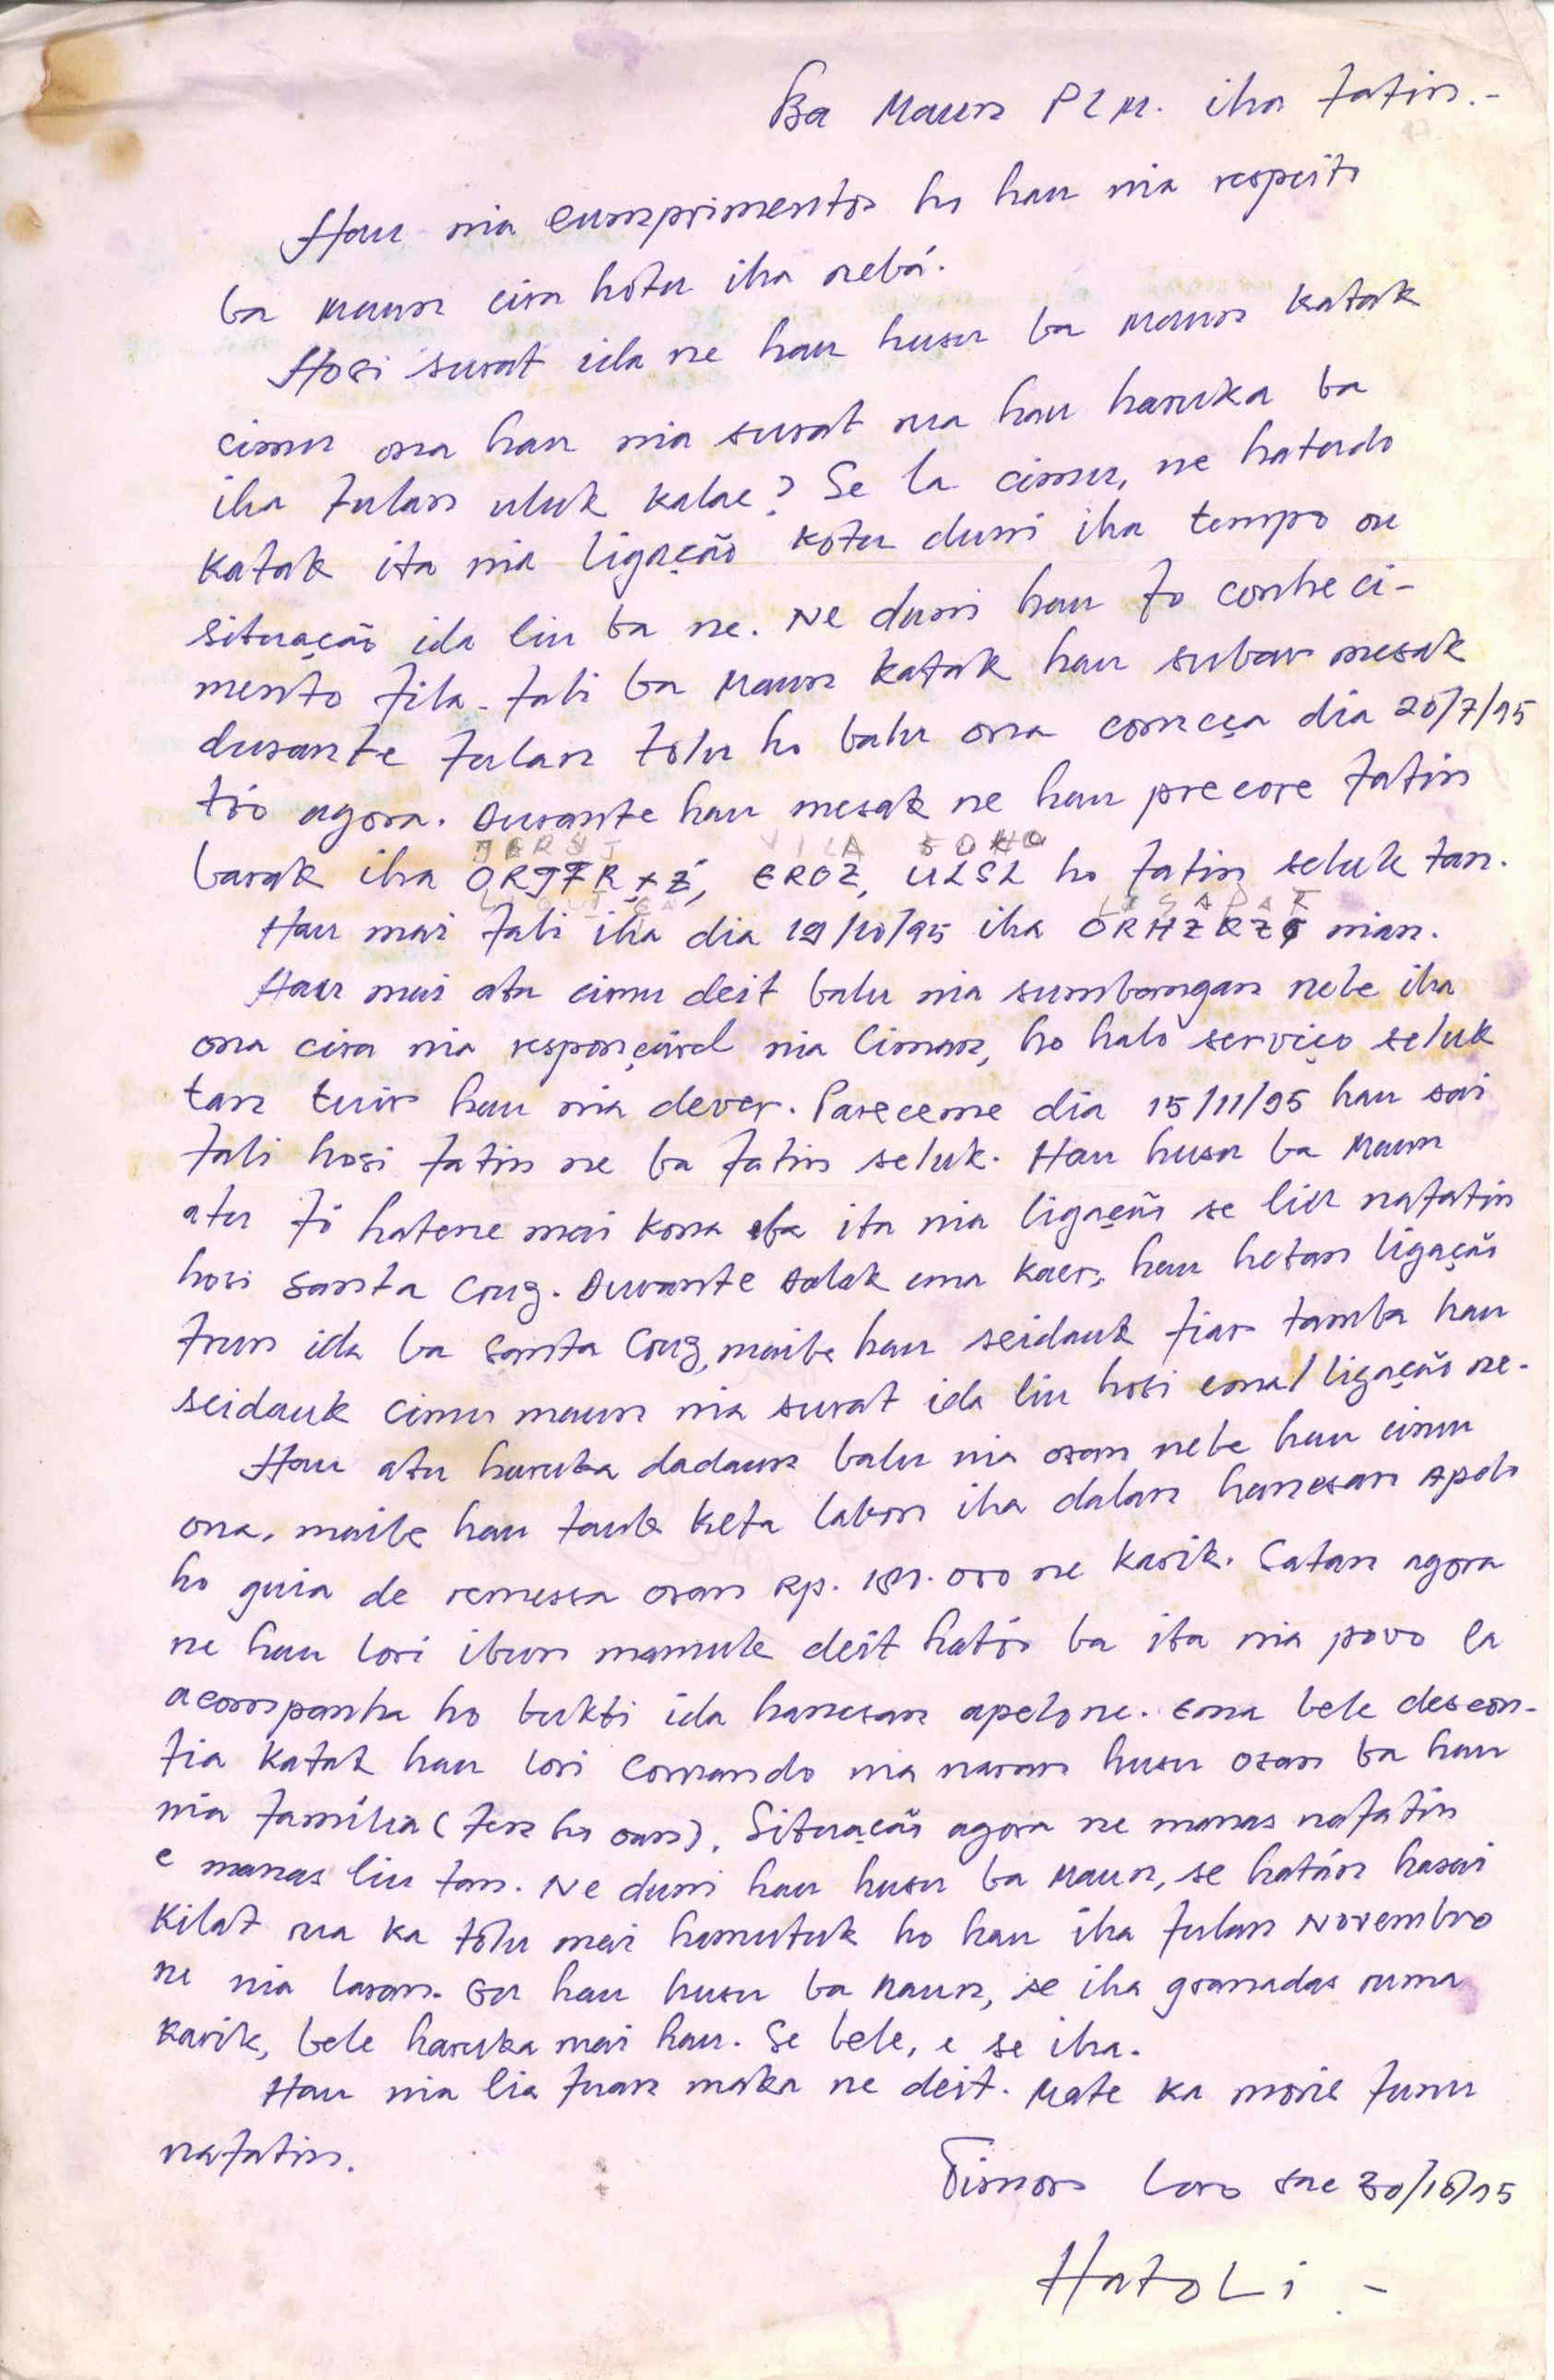 Ba Maun P L M. iha fatin.-
Hau nia cumprimentos ho hau nia respeito
ba maun cira hotu iha nebá.
Hosi surat ida ne hau husu ba maun katak
cimu ona hau nia surat rua hau haruka ba
iha fulan uluk kalae? Se la cimu, ne hatudo
katak ita nia ligação kotu duni iha tempo ou
situação ida liu ba ne. Ne duni hau fo conheci-
mento fila-fali ba Maun katak hau subar mesak
durante fulan tolu ho balu ona começa dia 20/7/95
tó agora. Durante hau mesak ne hau precore fatin
VILA
barak iha EROZ, ULSL ho fatin seluk tan.
Hau mai fali iha dia 19/10/95 iha nian.
Hau mai atu cimu deit balu nia sumbangan nebe iha
ona cira nia responçavel nia liman, ho halo serviço seluk
tan tuir hau nia dever. Pareceme dia 15/11/95 hau sai
fali hosi fatin ne ba fatin seluk. Hau husu ba Maun
atu fó hatene mai kona ba ita nia ligação se liu nafatin
hosi Santa Cruz. Durante dalak ema kaer, hau hetan ligação
foun ida ba Santa Cruz, maibe hau seidauk fiar tamba hau
seidauk cimu maun nia surat ida liu hosi ema/ligação ne.
Hau atu haruka dadaun balu nia osan nebe hau cimu
ona, maibe hau tauk keta lakon iha dalan hanesan apelo
ho guia de remessa osan Rp. 000 ne karik. Satan agora
ne hau lori ibun mamuk deit ható ba ita nia povo la
acompanha ho bukti ida hanesan apelo ne. Ema bele descon-
fia katak hau lori Comando nia naran husu osan ba hau
nia família (fen ho oan). Situação agora ne manas nafatin
e manas liu tan. Ne duni hau husu ba Maun, se hatán hasai
Kilat rua ka tolu mai hamutuk ho hau iha fulan Novembro
ne nia laran. Ou hau husu ba Maun, se iha granadas ruma
karik, bele haruka mai hau. Se bele, e se iha.
Hau nia lia fuan maka ne deit. Mate ka moris funu
nafatin.
Timor Loro sae 30/10/95
HatoLi.-